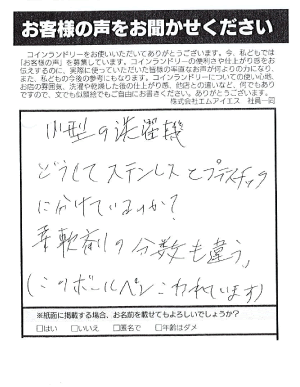 お客様の声をお聞かせください
コインランドリーをお使いいただいてありがとうございます。今、私どもでは
「お客様の声」を募集しています。コインランドリーの便利さや仕上がり感をお
伝えするのに、実際に使っていただいた皆様の率直なお声が何よりの力になり、
また、私どもの今後の参考にもなります。コインランドリーについての使い心地、
お店の雰囲気、洗濯や乾燥した後の仕上がり感、他店との違いなど、何でもあり
ですので、文でも似顔絵でもご自由にお書きください。ありがとうございます。
株式会社エムアイエス　社員一同
小型の洗濯機
どうして ステンレス と プラスチック
に分けているのか?
柔軟剤の分数も違う、
(このボールペンこわれています)
※紙面に掲載する場合、お名前を載せてもよろしいでしょうか?
□はい　□いいえ　□匿名で　□年齢はダメ